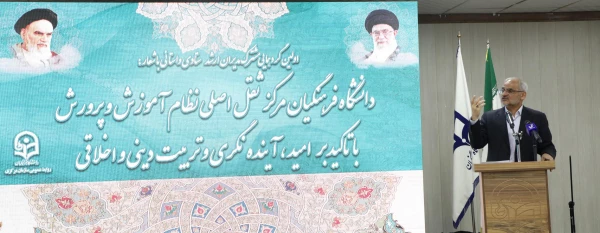 اولین گردهمایی مشترک مدیران ارشد ستادی و استانی با شعار:
دانشگاه فرهنگیان مرکز ثقل اصلی نظام آموزش و پرورش
با تاکید بر امید، آینده نگری و تربیت دینی و اخلاقی
دانشگاه فرهنگیان
روابط عمومی سازمان مرکزی